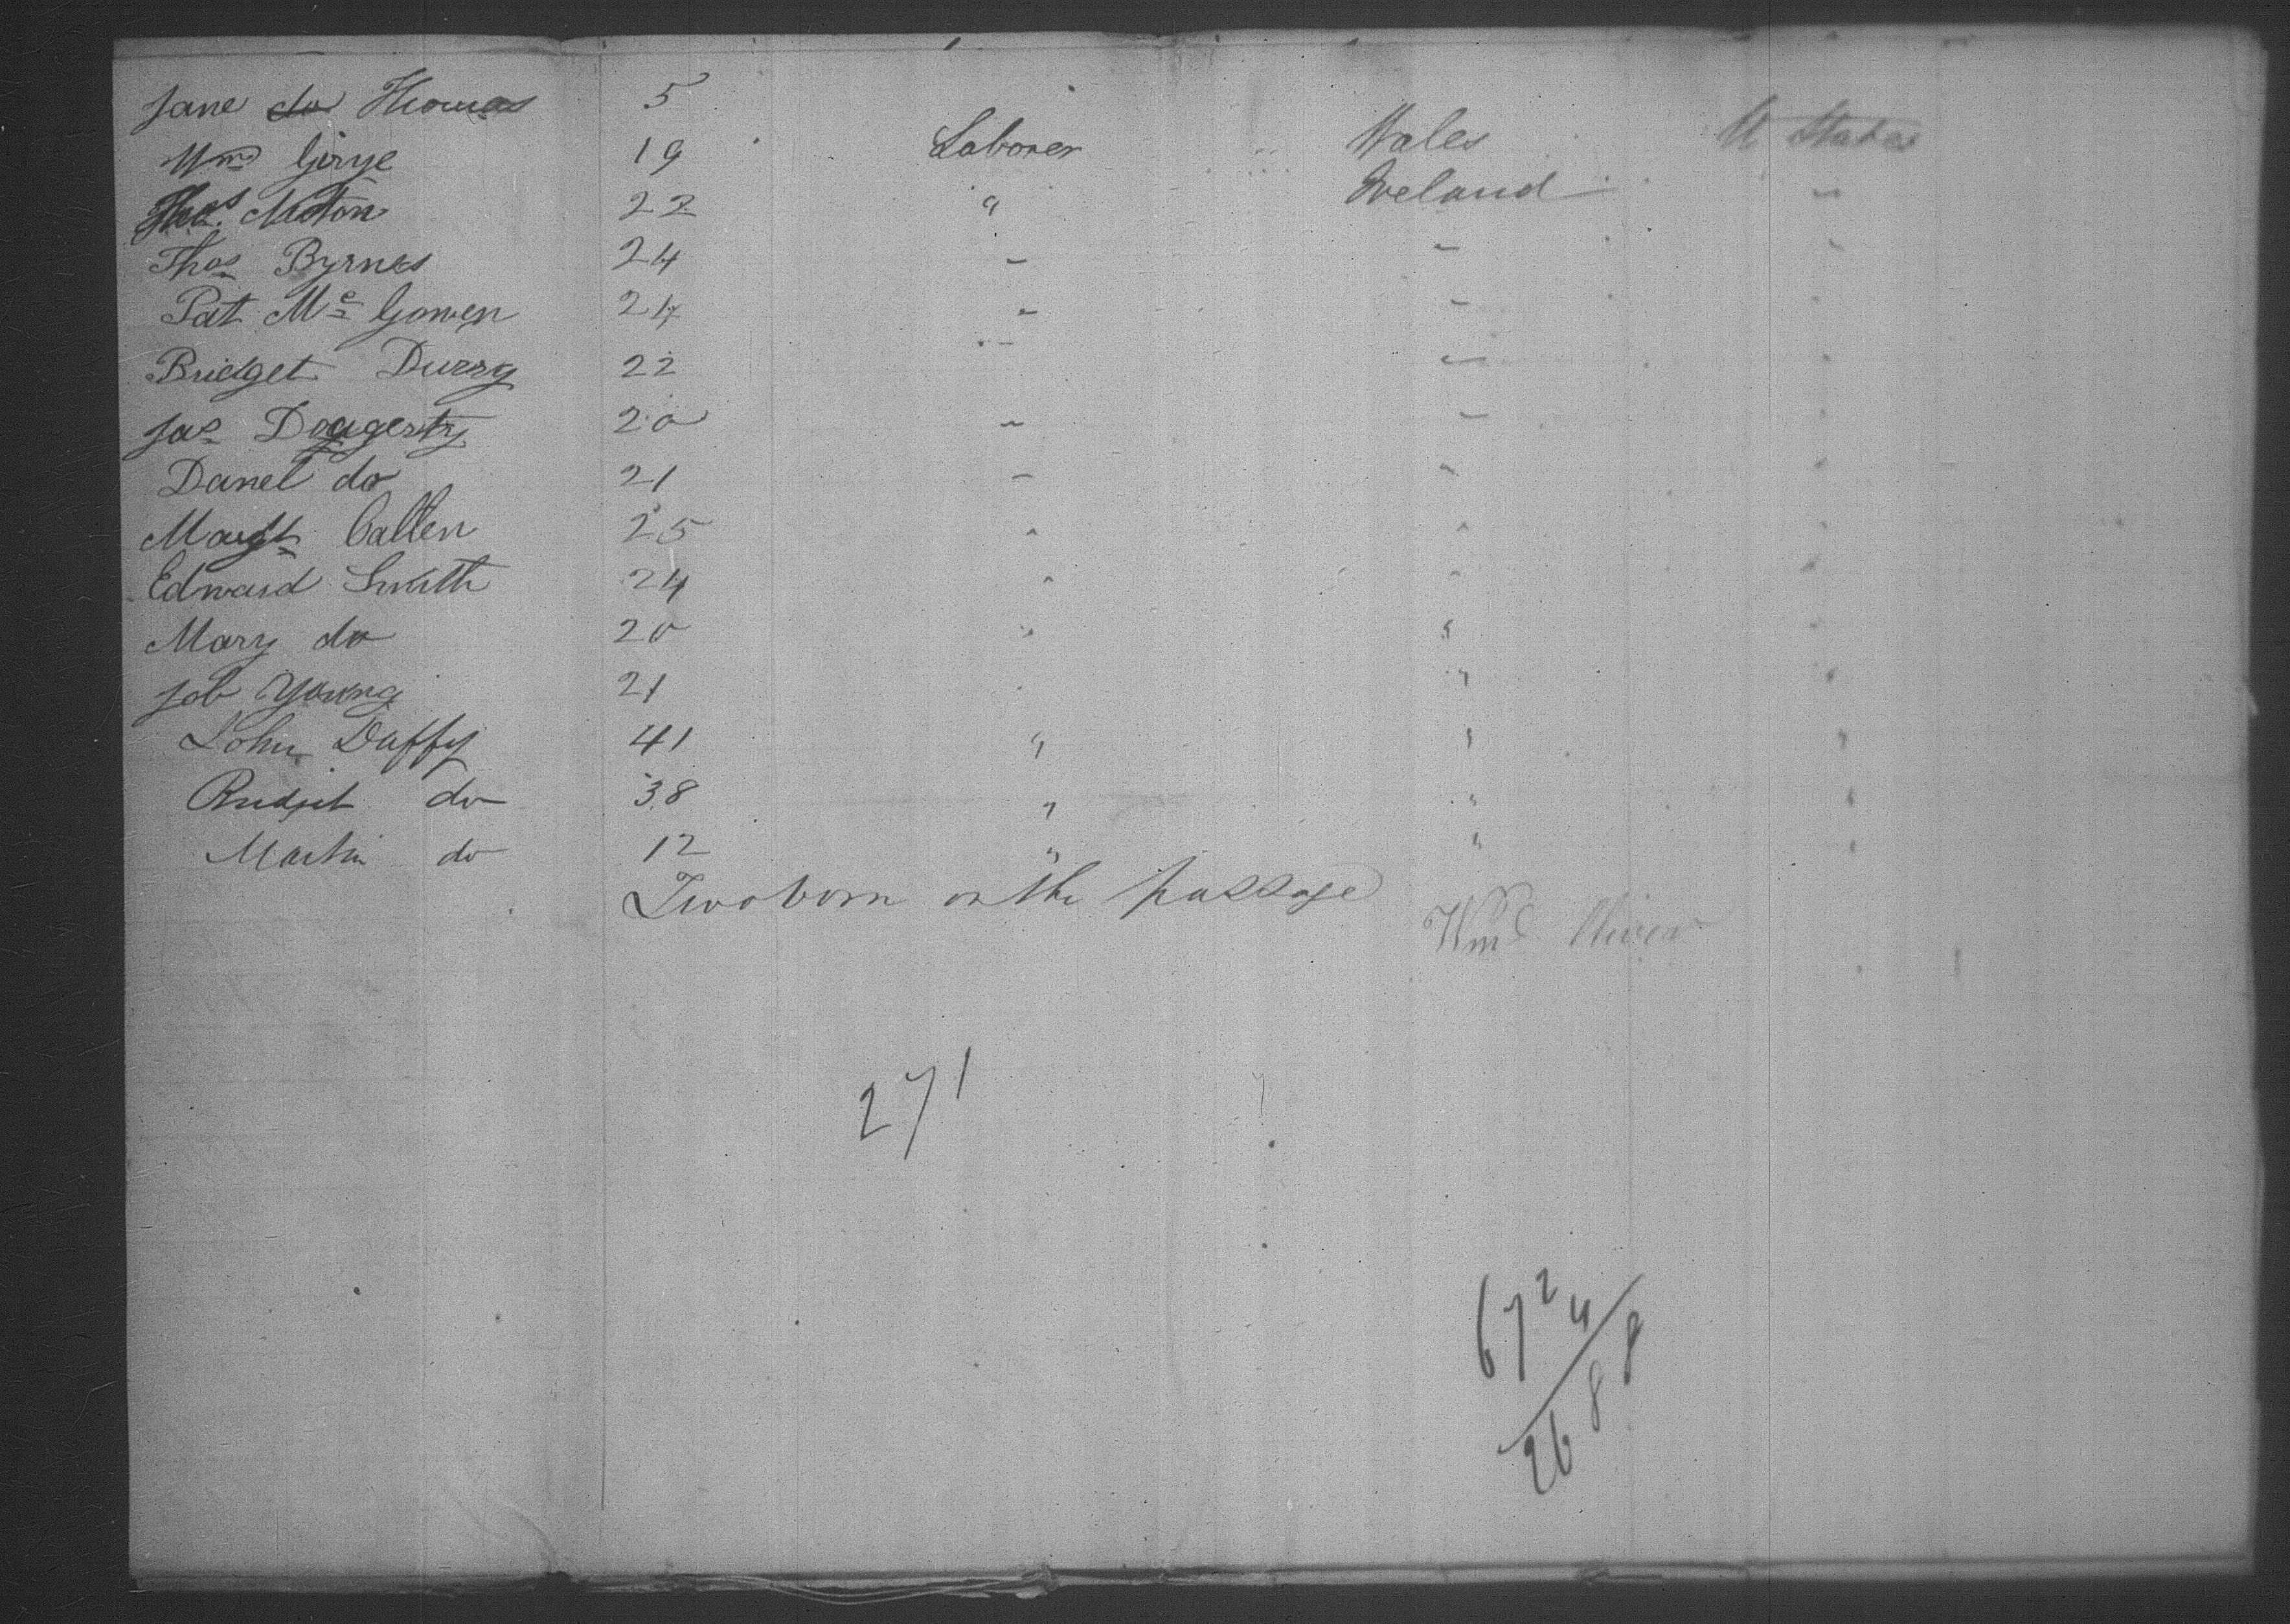 Jane do Thomas 5
Wm Girye 19 Laborer Wales U States
Thos. Moton 22 " Ireland "
Thos Byrnes 24 " " "
Pat Mc Gowen 24 " " "
Bridget Durry 22 " "
Jas Dougerty 20 " " "
Danel do 21 " " "
Margt Callen 25 " " "
Edward Smith 24 " " "
Mary do 20 " " "
Job Young 21 " "
John Duffy 41 " " "
Bridget do 38 " " "
Martin do 12 " " "
Two born on the passage
Wm Oliver
271
6724
2688